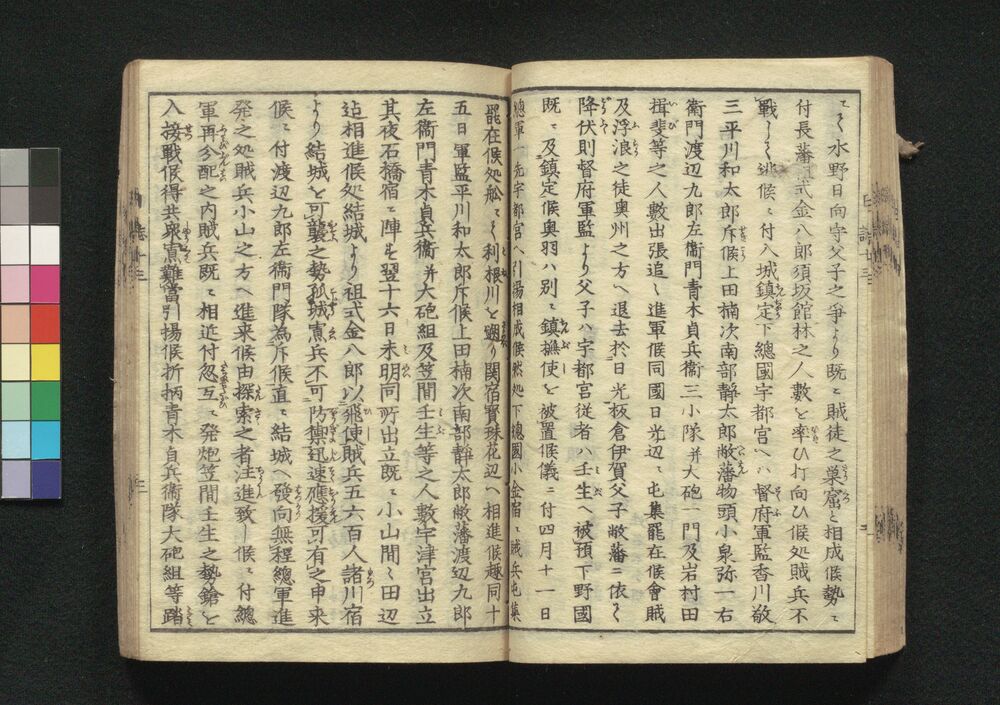 て水野日向守父子之爭より既ニ賊徒之巣窟と相成候勢ニ
付長藩祖式金八郎須坂館林之人數を率ひ打向ひ候処賊兵不
戰しる逃候ニ付入城鎮定下總國宇都宮へハ督府軍監香川敬
三平川和太郎斥候上田楠次南部靜太郎敝藩物頭小泉弥一右
衛門渡辺九郎左衞門青木貞兵衞三小隊并大砲一門及岩村田
揖斐等之人數出張追々進軍候同國日光辺ニ屯集罷在候會賊
及浮浪之徒奥州之方へ退去於日光板倉伊賀父子敝藩ニ依く
降伏則督府軍監より父子ハ宇都宮従者ハ壬生へ被預下野國
既ニ及鎮定候奥羽ハ別ニ鎮撫使を被置候儀ニ付四月十一日
總軍一先宇都宮へ引揚相成候然処下總國小金宿ニ賊兵屯集
罷在候処舩ニて利根川を廽り関宿寳珠花辺へ相進候趣同十
五日軍監平川和太郎斥候上田楠次南部靜太郎敝藩渡辺九郎
左衞門青木貞兵衞并大砲組及笠間壬生等之人數宇津宮出立
其夜石橋宿ニ陣を翌十六日未明同所出立既ニ小山間々田辺
迠相進候処結城より祖式金八郎以飛使賊兵五六百人諸川宿
より結城を可襲之勢孤城寡兵不可防禦迅速應援可有之申来
候ニ付渡辺九郎左衞門隊為斥候直ニ結城へ發向無程總軍進
発之処賊兵小山之方へ進来候由探索之者注進致し候ニ付總
軍再分配之内賊兵既ニ相近付忽互ニ発炮笠間壬生之勢鎗を
入接戰候得共衆寡難當引揚候折柄青木貞兵衞隊大砲組等踏